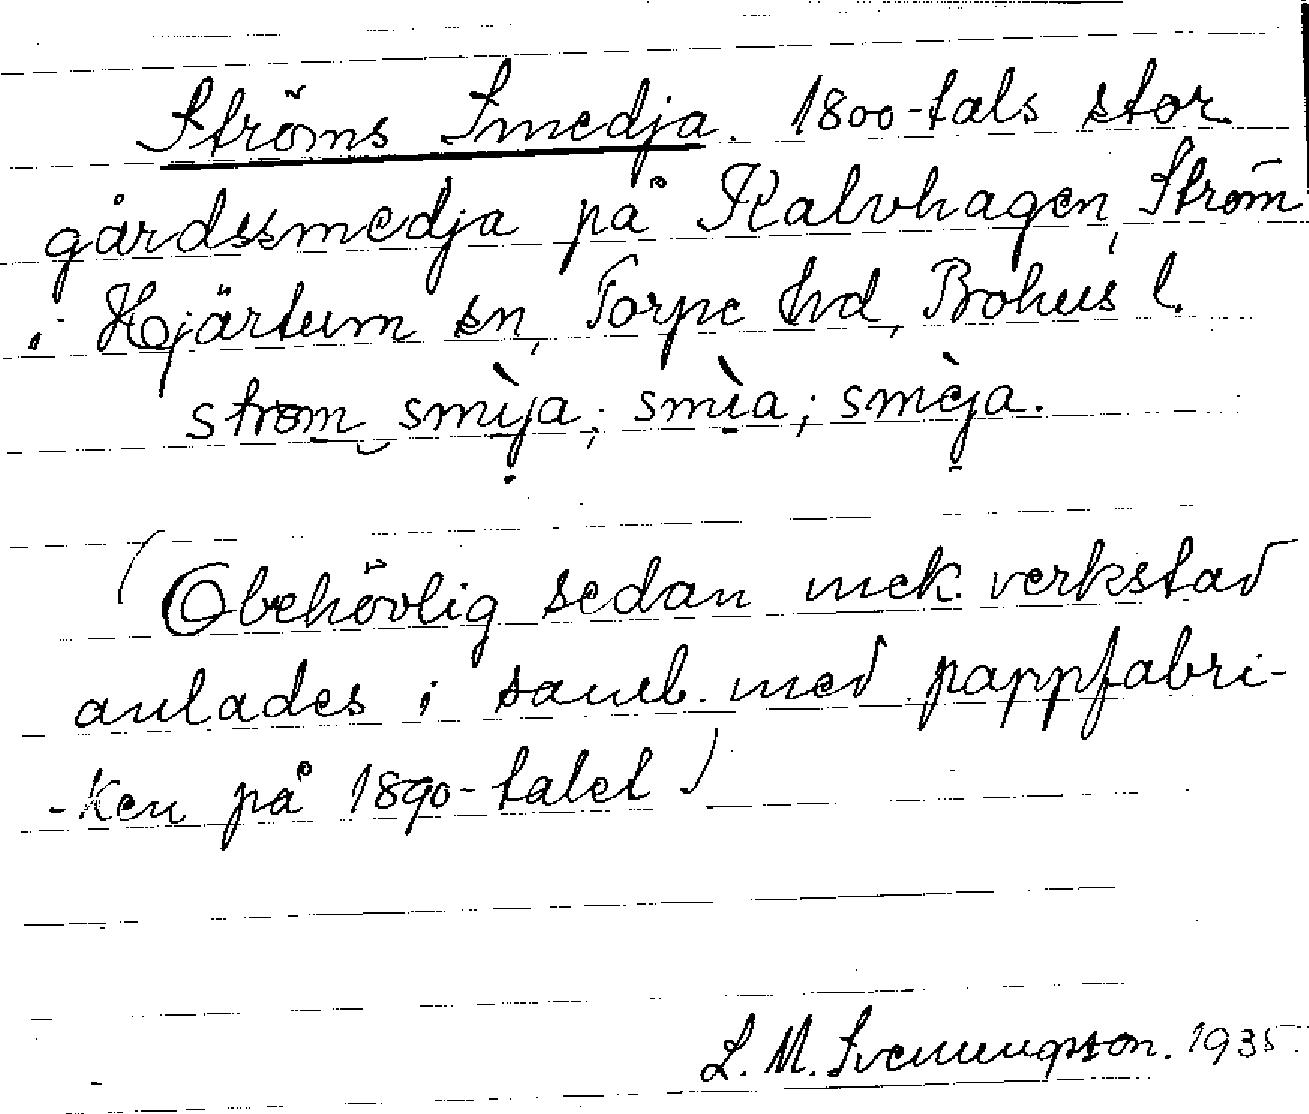 Ströms Smedja. 1800-tals stor
gårdssmedja på Kalvhagen, Ström
i Hjärtum sn, Torpe hd, Bohus l.
strøm smìja; smìa; smèja.
(Obehövlig sedan mek. verkstad
anlades i samb. med pappfabri-
-ken på 1890-talet)
L. M. Svenungsson. 1935.